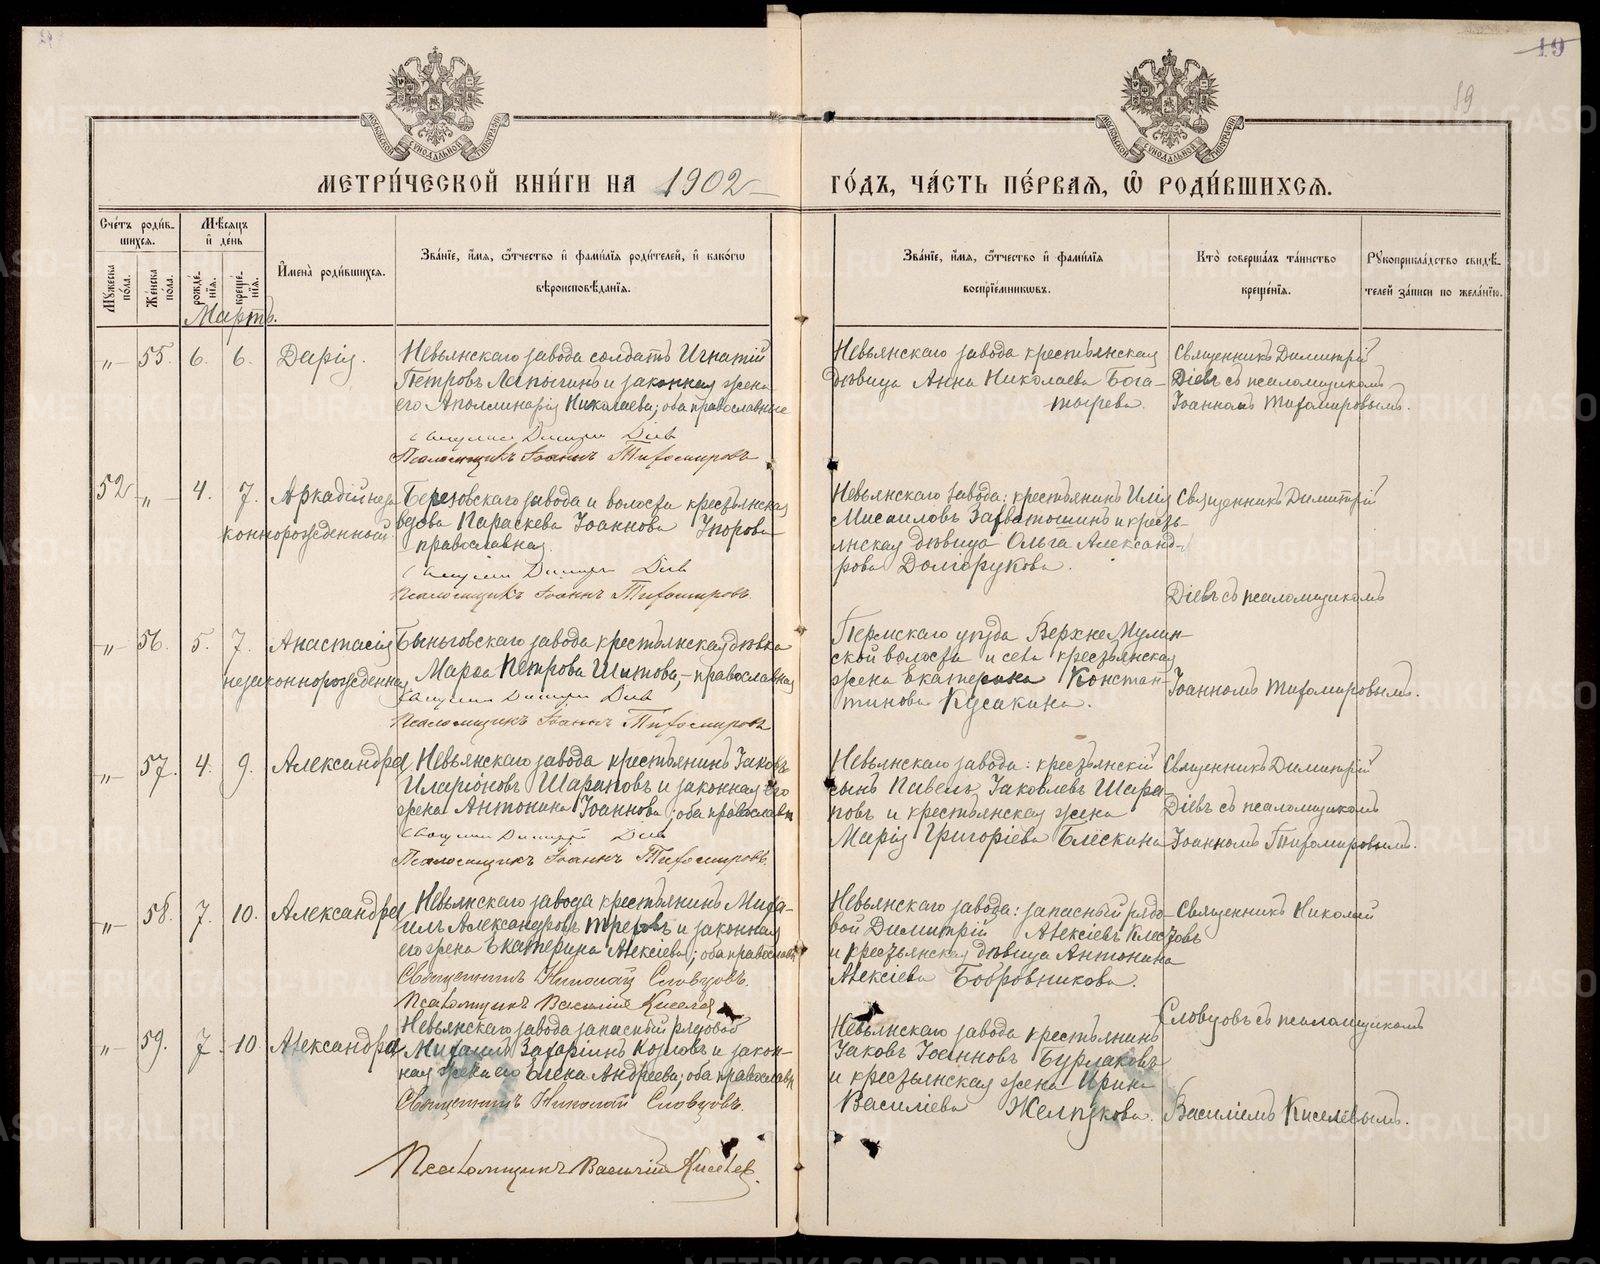 19
19
МЕТРИ́ЧЕСКОЙ КНИ́ГИ НА 1902 ГО́ДЪ, ЧА́СТЬ ПЕ́РВАѦ, Ѿ РОДИ́ВШИХСѦ.
Сче́тъ роди́в-
шихсѧ.
Мꙋ́жеска по́ла.
Же́нска по́ла.
Мѣ́сѧцъ и҆ де́нь
рожде́-
нїѧ.
креще́-
нїѧ.
И҆мена̀ роди́вшихсѧ.
Зва́нїе, и҆́мѧ, ѻ҆́тчество и҆ фами́лїѧ роди́телей, и҆ како́гѡ
вѣроисповѣ́данїѧ.
Зва́нїе, и҆́мѧ, ѻ҆́тчество и҆ фами́лїѧ
воспрїе́мникѡвъ.
Кто̀ соверша́лъ та́инство
креще́нїѧ.
Рꙋкоприкла́дство свидѣ́-
телей за́писи по жела́нїю.
Мартъ.
„ 55. 6. 6. Дарія.
Невьянскаго завода солдатъ Игнатій
Петровъ Лапычинъ и законная жена
его Аполлинарія Николаева; оба православные
Священникъ Димитрій Діевъ
Псаломщикъ Іоаннъ Тихомировъ
Невьянскаго завода крестьянская
дѣвица Анна Николаева Бога-
тырева.
Священникъ Димитрій
Діевъ съ псаломщикомъ
Іоанномъ Тихомировымъ.
52 „ 4. 7. Аркадій неза
коннорожденный
Березовскаго завода и волости крестьянская
вдова Параскева Іоаннова
православная.
Священникъ Димитрій Діевъ
Псаломщикъ Іоаннъ Тихомировъ.
Невьянскаго завода: крестьянинъ Илія
Мисаиловъ и кресть-
янская дѣвица Ольга Александ-
рова Долгорукова.
Священникъ Димитрій
Діевъ съ псаломщикомъ
„ 56. 5. 7. Анастасія
незаконнорожденная
Быньговскаго завода крестьянская дѣвка
Марѳа Петрова Шитова, православная
Священникъ Димитрій Діевъ
Псаломщикъ Іоаннъ Тихомировъ
Пермскаго уѣзда ВерхнеМулин-
ской волости и села крестьянская
жена Екатерина Констан-
тинова Кусакина.
Іоанномъ Тихомировымъ.
„ 57. 4. 9. Александра
Невьянскаго завода крестьянинъ Іаковъ
Иларіоновъ Шараповъ и законная его
жена Антонина Іоаннова; оба православн
Священникъ Димитрій Діевъ
Псаломщикъ Іоаннъ Тихомировъ.
Невьянскаго завода: крестьянскій
сынъ Павелъ Іаковлевъ Шара
повъ и крестьянская жена
Марія Григоріева Блескина
Священникъ Димитрій
Діевъ съ псаломщикомъ
Іоанномъ Тихомировымъ.
„ 58. 7. 10. Александра
Невьянскаго завода крестьянинъ Миха-
илъ Александровъ и законная
его жена Екатерина Алексіева; оба православн
Священникъ Николай Словцовъ.
Псаломщикъ Василій Киселев
Невьянскаго завода: запасный рядо-
вой Димитрій Алексіевъ
и крестьянская дѣвица Антонина
Алексіева Бобровникова.
Священникъ Николай
Словцовъ съ псаломщикомъ
„ 59. 7. 10 Александра
Невьянскаго завода запасный рядовой
Михаилъ Захаріинъ Козловъ и закон-
ная жена его Елена Андреева; оба православн
Священникъ Николай Словцовъ.
Псаломщикъ Василій Киселев.
Невьянскаго завода крестьянинъ
Іаковъ Іоанновъ Бурлаковъ
и крестьянская жена Ирина
Василіева
Василіемъ Киселевымъ.
METRIKI.GASO-URAL.RU